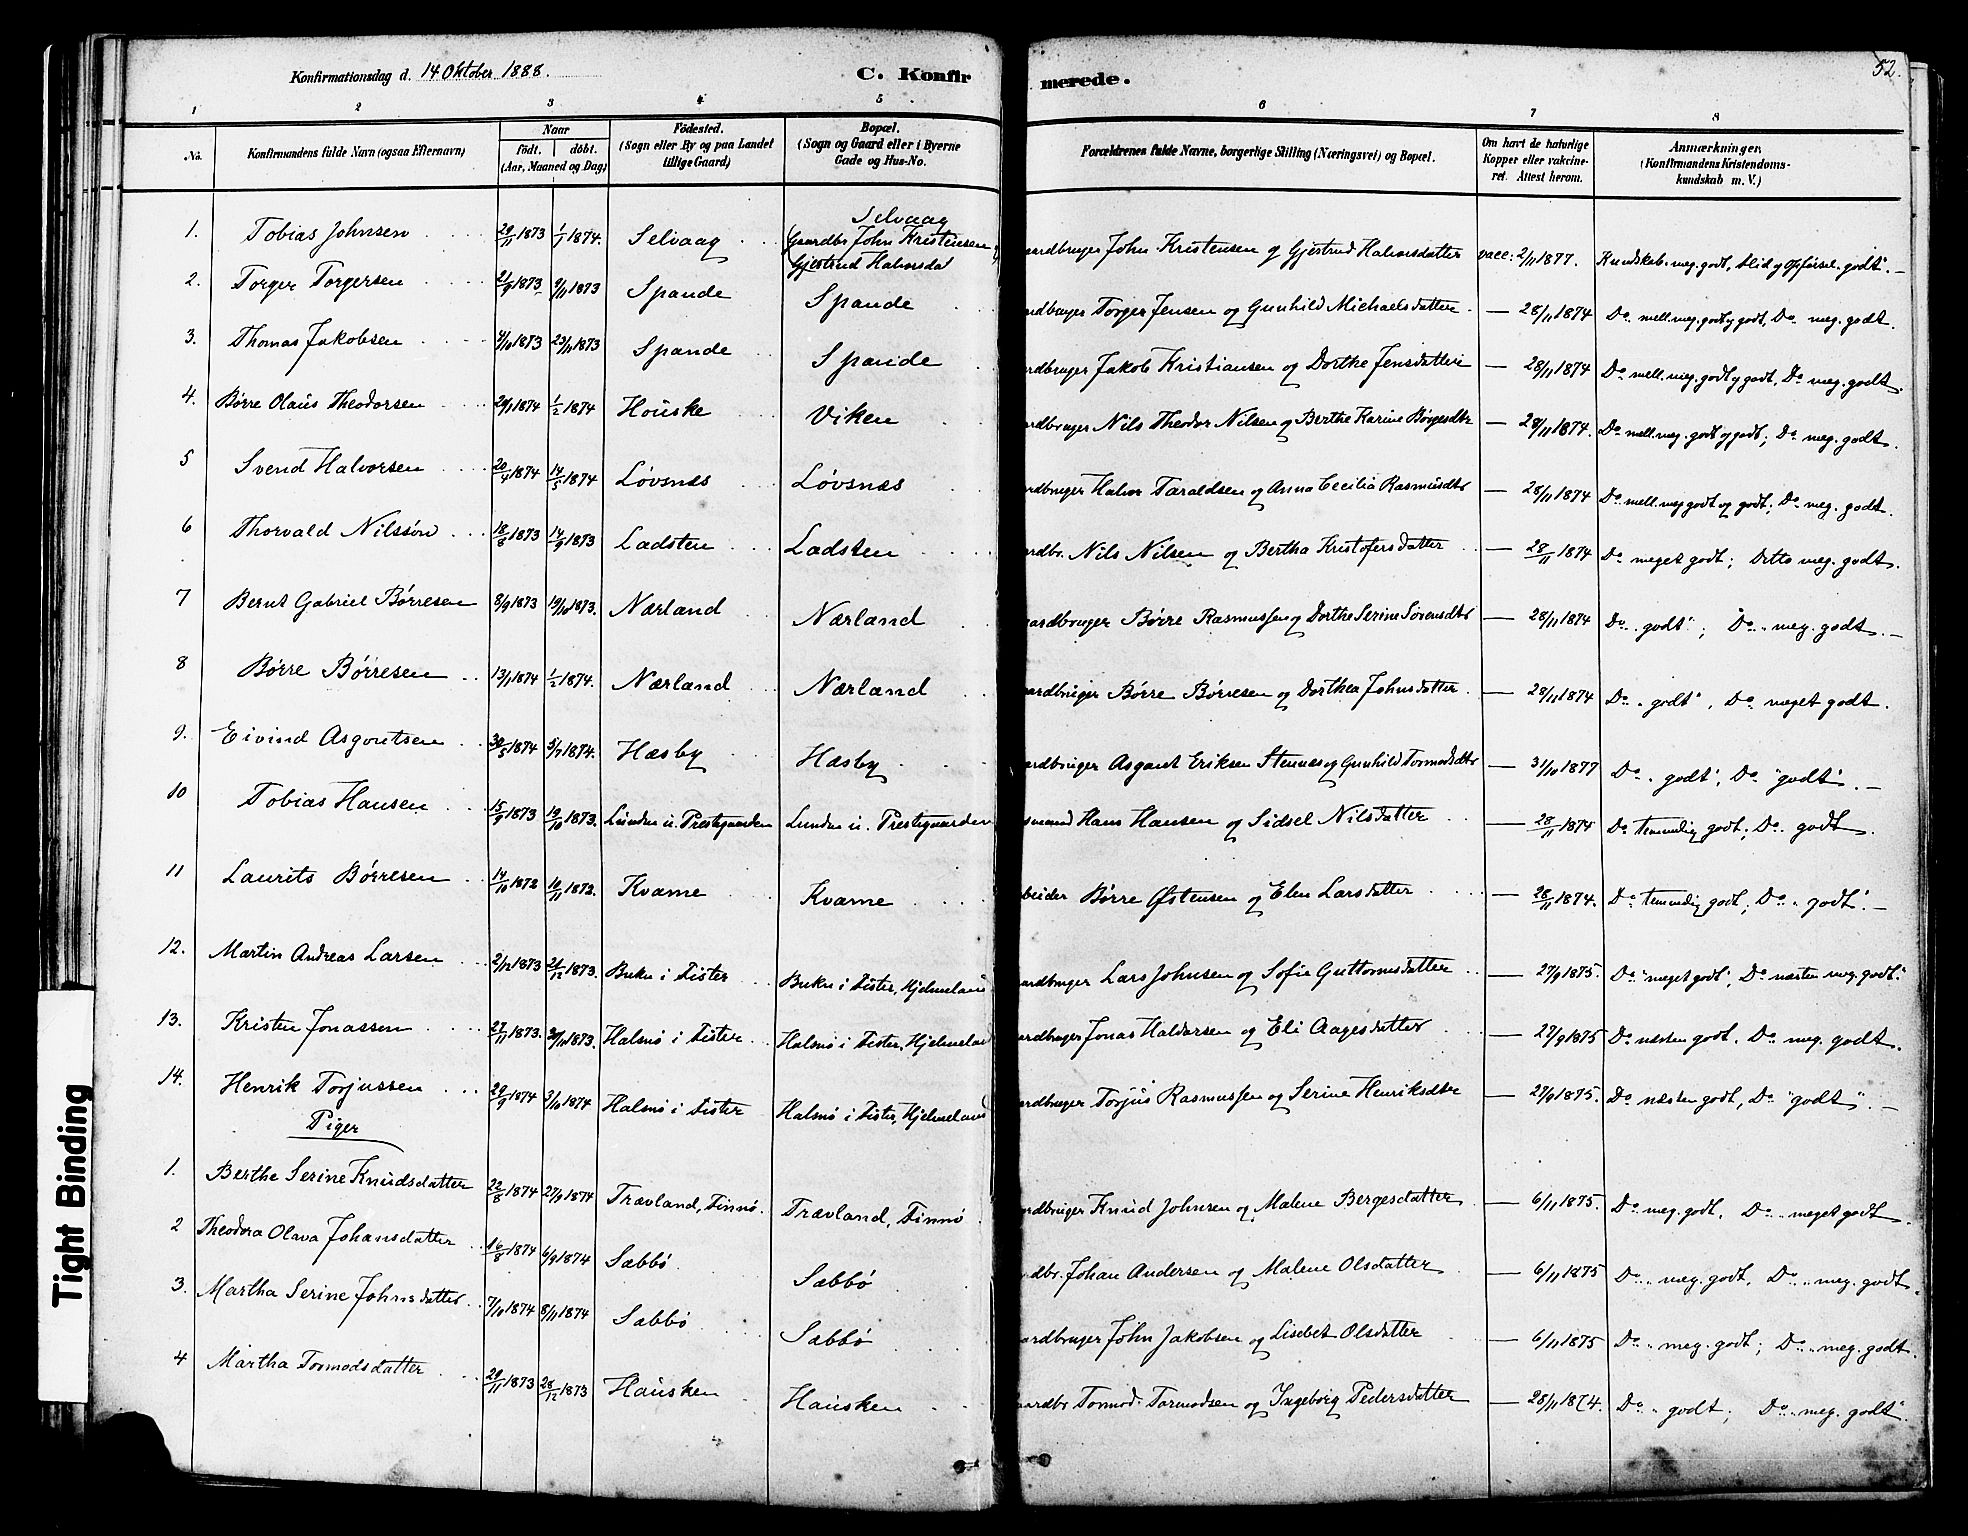 Konfirmationsdag d. 14 Oktober 1888.
C. Konfirmerede.
52.
1 2 3 4 5 6 7 8
No.
Konfirmandens fulde Navn (ogsaa Efternavn)
Naar
födt. döbt.
(Aar, Maaned og Dag)
Födested.
(Sogn eller By og paa Landet
tillige Gaard)
Bopæl.
(Sogn og Gaard eller i Byerne
Gade og Hus-No.
Forældrenes fulde Navne, borgerlige Stilling (Næringsvei) og Bopæl.
Om havt de naturlige
Kopper eller vakcine-
ret. Attest herom.
Anmærkninger.
(Konfirmandens Kristendoms-
kundskab m. V.)
Selvaag
1. Tobias Johnsen 29/11 1873 1/1 1874. Selvaag Gaardbr. John Kristensen ardbruger John Kristensen og Gjertrud Halvorsdatter vacc: 2/11 1877. Kundskab. meg. godt, Flid og Opførsel. godt. —
Gjertrud Halvorsda
2. Torger Torgersen 21/9 1873 9/11 1873 Spande Spande ndbruger Torger Jensen og Gunhild Michaelsdatter — 28/11 1874 Do mell. meg. godt og godt, Do meg. godt.
3. Thomas Jakobsen 4/10 1873 23/11 1873 Spande Spande ardbruger Jakob Kristiansen og Dorthe Jensdatter — 28/11 1874 Do mell. meg. godt og godt, Do meg. godt
4. Børre Olaus Theodorsen 20/1 1874 1/2 1874 Houske Viken ardbruger Nils Theodor Nilsen og Berthe Karine Børgesdtr — 28/11 1874. Do mell. meg. godt og godt; Do meg. godt.
5 Svend Halvorsen 20/4 1874 14/5 1874 Løvsnæs Løvsnæs rdbruger Halvor Taraldsen og Anna Cecilia Rasmusdtr — 28/11 1874 Do mell. meg godt og godt; Do meg. godt.
6 Thorvald Nilssøn 18/8 1873 14/9 1873 Ladsten Ladsten ardbr. Nils Nilsen og Bertha Kristofersdatter — 28/11 1874 Do meget godt; Ditto meg. godt.
7 Bernt Gabriel Børresen 8/9 1873 19/10 1873. Nærland Nærland aardbruger Børre Rasmussen og Dorthe Serine Sørensdtr — 28/11 1874 Do godt; Do meg. godt. —
8 Børre Børresen 13/1 1874 1/2 1874. Nærland Nærland ardbruger Børre Børresen og Dorthea Johnsdatter — 28/11 1874 Do godt, Do meget godt.
9. Eivind Asgoutsen 30/5 1874 5/7 1874. Hæsby Hæsby ardbruger Asgaut Eriksen Stennes og Gunhild Tormodsdtr — 31/10 1877 Do godt, Do "godt". —
10 Tobias Hansen 15/9 1873 19/10 1873. Lunden u. Prestegaarden Lunden u. Prestegaarden smand Hans Hansen og Sidsel Nilsdatter — 28/11 1874 Do temmelig godt; Do. godt.
11 Laurits Børresen 14/10 1872 10/11 1872. Kvame Kvame beider Børre Østensen og Elen Larsdatter — 28/11 1874. Do temmelig godt, Do godt. —
12. Martin Andreas Larsen 2/12 1873 21/12 1873. Buku i Fister Buku i Fister, Hjelmeland ardbruger Lars Johnsen og Sofie Guttormsdatter — 27/9 1875. Do "meget godt", Do næsten meg. godt."
13. Kristen Jonassen 27/11 1873. 30/11 1873. Halsnø i Fister Halsnø i Fister, Hjelmeland ardbruger Jonas Haldorsen og Eli Aagesdatter — 27/9 1875 Do næsten godt. Do meg. godt.
14. Henrik Torjussen 29/9 1874 3/10 1874 Halsnø i Fister Halsnø i Fister, Hjelmeland ardbruger Torjus Rasmussen og Serine Henriksdtr — 27/9 1875. Do næsten godt, Do "godt". —
Piger
1. Berthe Serine Knudsdatter 22/8 1874 27/9 1874 Trævland, Finnø. Trævland, Finnø ndbruger Knud Johnsen og Malene Bergesdatter — 6/11 1875. Do meg. godt. Do meget godt.
2 Theodora Olava Johansdatter 16/8 1874 6/9 1874 Sæbbø Sæbbø rdbr. Johan Andersen og Malene Olsdatter — 6/11 1875 Do meg. godt, Do meg. godt.
3. Martha Serine Johnsdatter 7/10 1874 8/11 1874 Sæbbø Sæbbø ardbruger John Jakobsen og Lisebet Olsdatter — 6/11 1875 Do meg. godt; Do meg. godt.
4 Martha Tormodsdatter 29/11 1873 28/12 1873 Hausken Hausken aardbr Tormod Tormodsen og Ingeborg Pedersdatter — 28/11 1874. Do godt; Do meg. godt.
Tight Binding